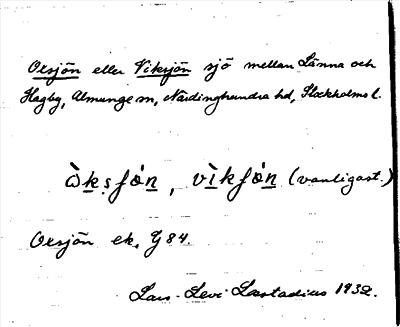 Oxsjön eller Viksjön sjö mellan Länna och
Hagby, Almunge sn, Närdinghundra hd, Stockholms l.
ὼksʃón, vìkʃón (vanligast.)
Oxsjön ek. G 84.
Lars-Levi Læstadius 1932.